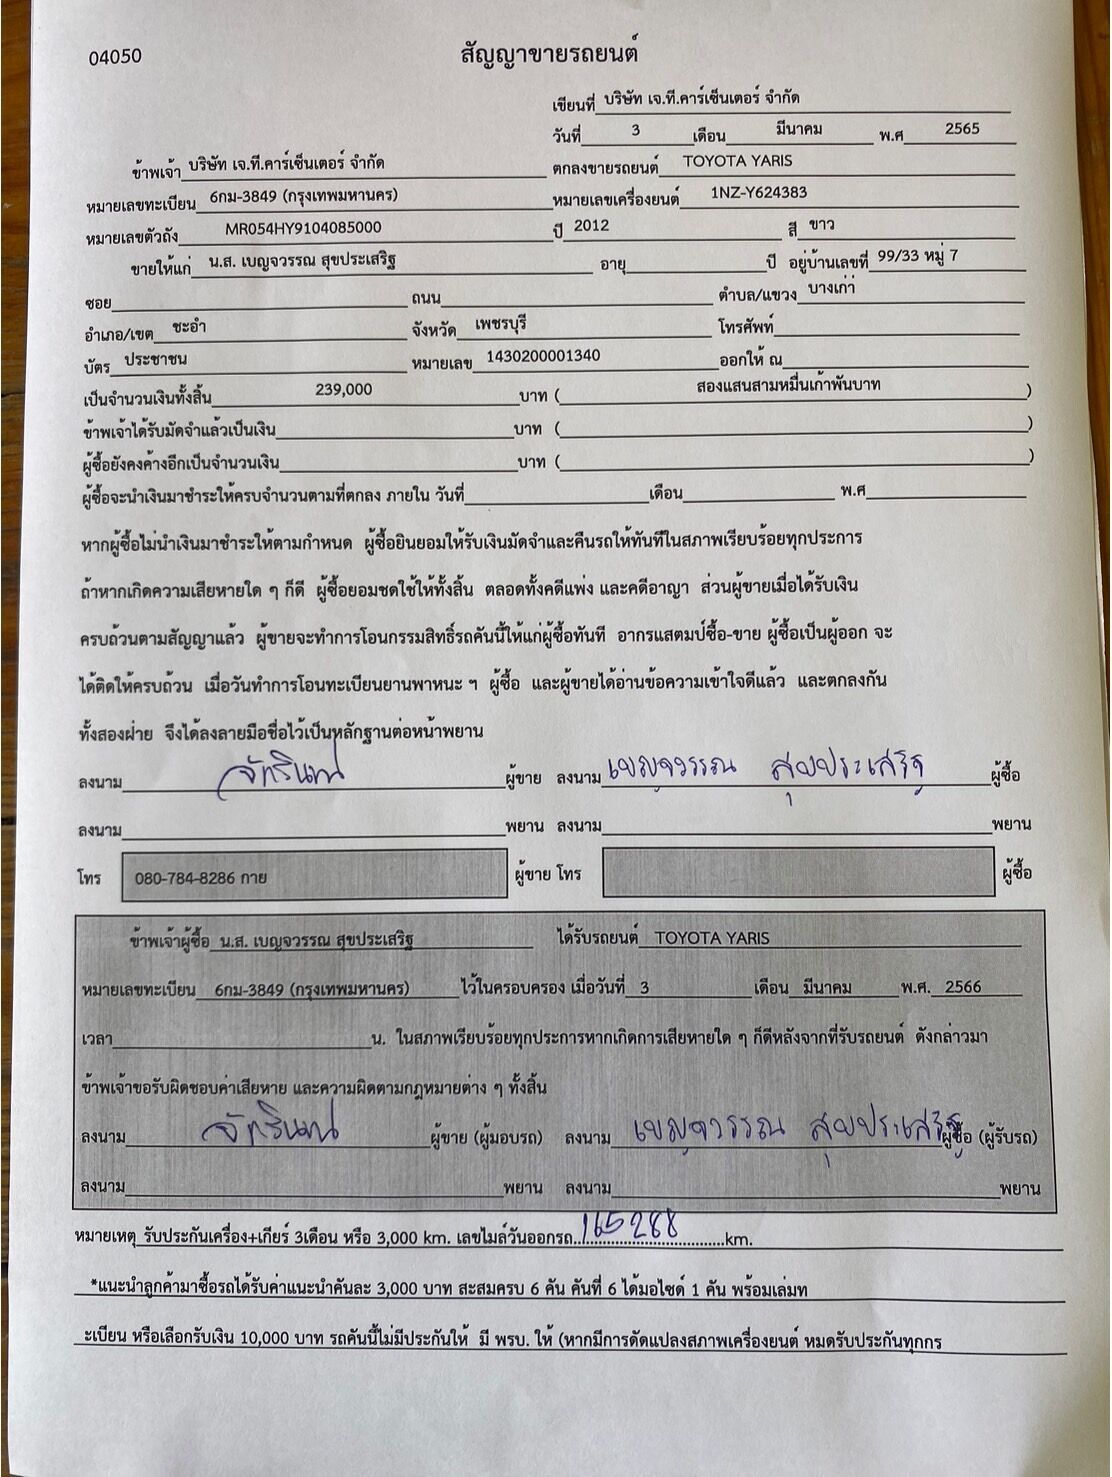 04050
สัญญาขายรถยนต์
เขียนที่ บริษัท เจ.ที.คาร์เซ็นเตอร์ จำกัด
วันที่ 3 เดือน มีนาคม พ.ศ 2565
ข้าพเจ้า บริษัท เจ.ที.คาร์เซ็นเตอร์ จำกัด ตกลงขายรถยนต์ TOYOTA YARIS
หมายเลขทะเบียน 6กม-3849 (กรุงเทพมหานคร) หมายเลขเครื่องยนต์ 1NZ-Y624383
หมายเลขตัวถัง MR054HY9104085000 ปี 2012 สี ขาว
ขายให้แก่ น.ส. เบญจวรรณ สุขประเสริฐ อายุ ปี อยู่บ้านเลขที่ 99/33 หมู่ 7
ซอย ถนน ตำบล/แขวง บางเก่า
อำเภอ/เขต ชะอำ จังหวัด เพชรบุรี โทรศัพท์
บัตร ประชาชน หมายเลข 1430200001340 ออกให้ ณ
เป็นจำนวนเงินทั้งสิ้น 239,000 บาท ( สองแสนสามหมื่นเก้าพันบาท )
ข้าพเจ้าได้รับมัดจำแล้วเป็นเงิน บาท ( )
ผู้ซื้อยังคงค้างอีกเป็นจำนวนเงิน บาท ( )
ผู้ซื้อจะนำเงินมาชำระให้ครบจำนวนตามที่ตกลง ภายใน วันที่ เดือน พ.ศ
หากผู้ซื้อไม่นำเงินมาชำระให้ตามกำหนด ผู้ซื้อยินยอมให้รับเงินมัดจำและคืนรถให้ทันทีในสภาพเรียบร้อยทุกประการ
ถ้าหากเกิดความเสียหายใด ๆ ก็ดี ผู้ซื้อยอมชดใช้ให้ทั้งสิ้น ตลอดทั้งคดีแพ่ง และคดีอาญา ส่วนผู้ขายเมื่อได้รับเงิน
ครบถ้วนตามสัญญาแล้ว ผู้ขายจะทำการโอนกรรมสิทธิ์รถคันนี้ให้แก่ผู้ซื้อทันที อากรแสตมป์ซื้อ-ขาย ผู้ซื้อเป็นผู้ออก จะ
ได้ติดให้ครบถ้วน เมื่อวันทำการโอนทะเบียนยานพาหนะ ฯ ผู้ซื้อ และผู้ขายได้อ่านข้อความเข้าใจดีแล้ว และตกลงกัน
ทั้งสองฝ่าย จึงได้ลงลายมือชื่อไว้เป็นหลักฐานต่อหน้าพยาน
ลงนาม ผู้ขาย ลงนาม เบญจวรรณ สุขประเสริฐ ผู้ซื้อ
ลงนาม พยาน ลงนาม พยาน
โทร 080-784-8286 กาย ผู้ขาย โทร ผู้ซื้อ
ข้าพเจ้าผู้ซื้อ น.ส. เบญจวรรณ สุขประเสริฐ ได้รับรถยนต์ TOYOTA YARIS
หมายเลขทะเบียน 6กม-3849 (กรุงเทพมหานคร) ไว้ในครอบครอง เมื่อวันที่ 3 เดือน มีนาคม พ.ศ. 2566
เวลา น. ในสภาพเรียบร้อยทุกประการหากเกิดการเสียหายใด ๆ ก็ดีหลังจากที่รับรถยนต์ ดังกล่าวมา
ข้าพเจ้าขอรับผิดชอบค่าเสียหาย และความผิดตามกฎหมายต่าง ๆ ทั้งสิ้น
ลงนาม ผู้ขาย (ผู้มอบรถ) ลงนาม เบญจวรรณ สุขประเสริฐ ผู้ซื้อ (ผู้รับรถ)
ลงนาม พยาน ลงนาม พยาน
หมายเหตุ รับประกันเครื่อง+เกียร์ 3เดือน หรือ 3,000 km. เลขไมล์วันออกรถ 165288 km.
*แนะนำลูกค้ามาซื้อรถได้รับค่าแนะนำคันละ 3,000 บาท สะสมครบ 6 คัน คันที่ 6 ได้มอไซด์ 1 คัน พร้อมเล่มท
ะเบียน หรือเลือกรับเงิน 10,000 บาท รถคันนี้ไม่มีประกันให้ มี พรบ. ให้ (หากมีการดัดแปลงสภาพเครื่องยนต์ หมดรับประกันทุกกร